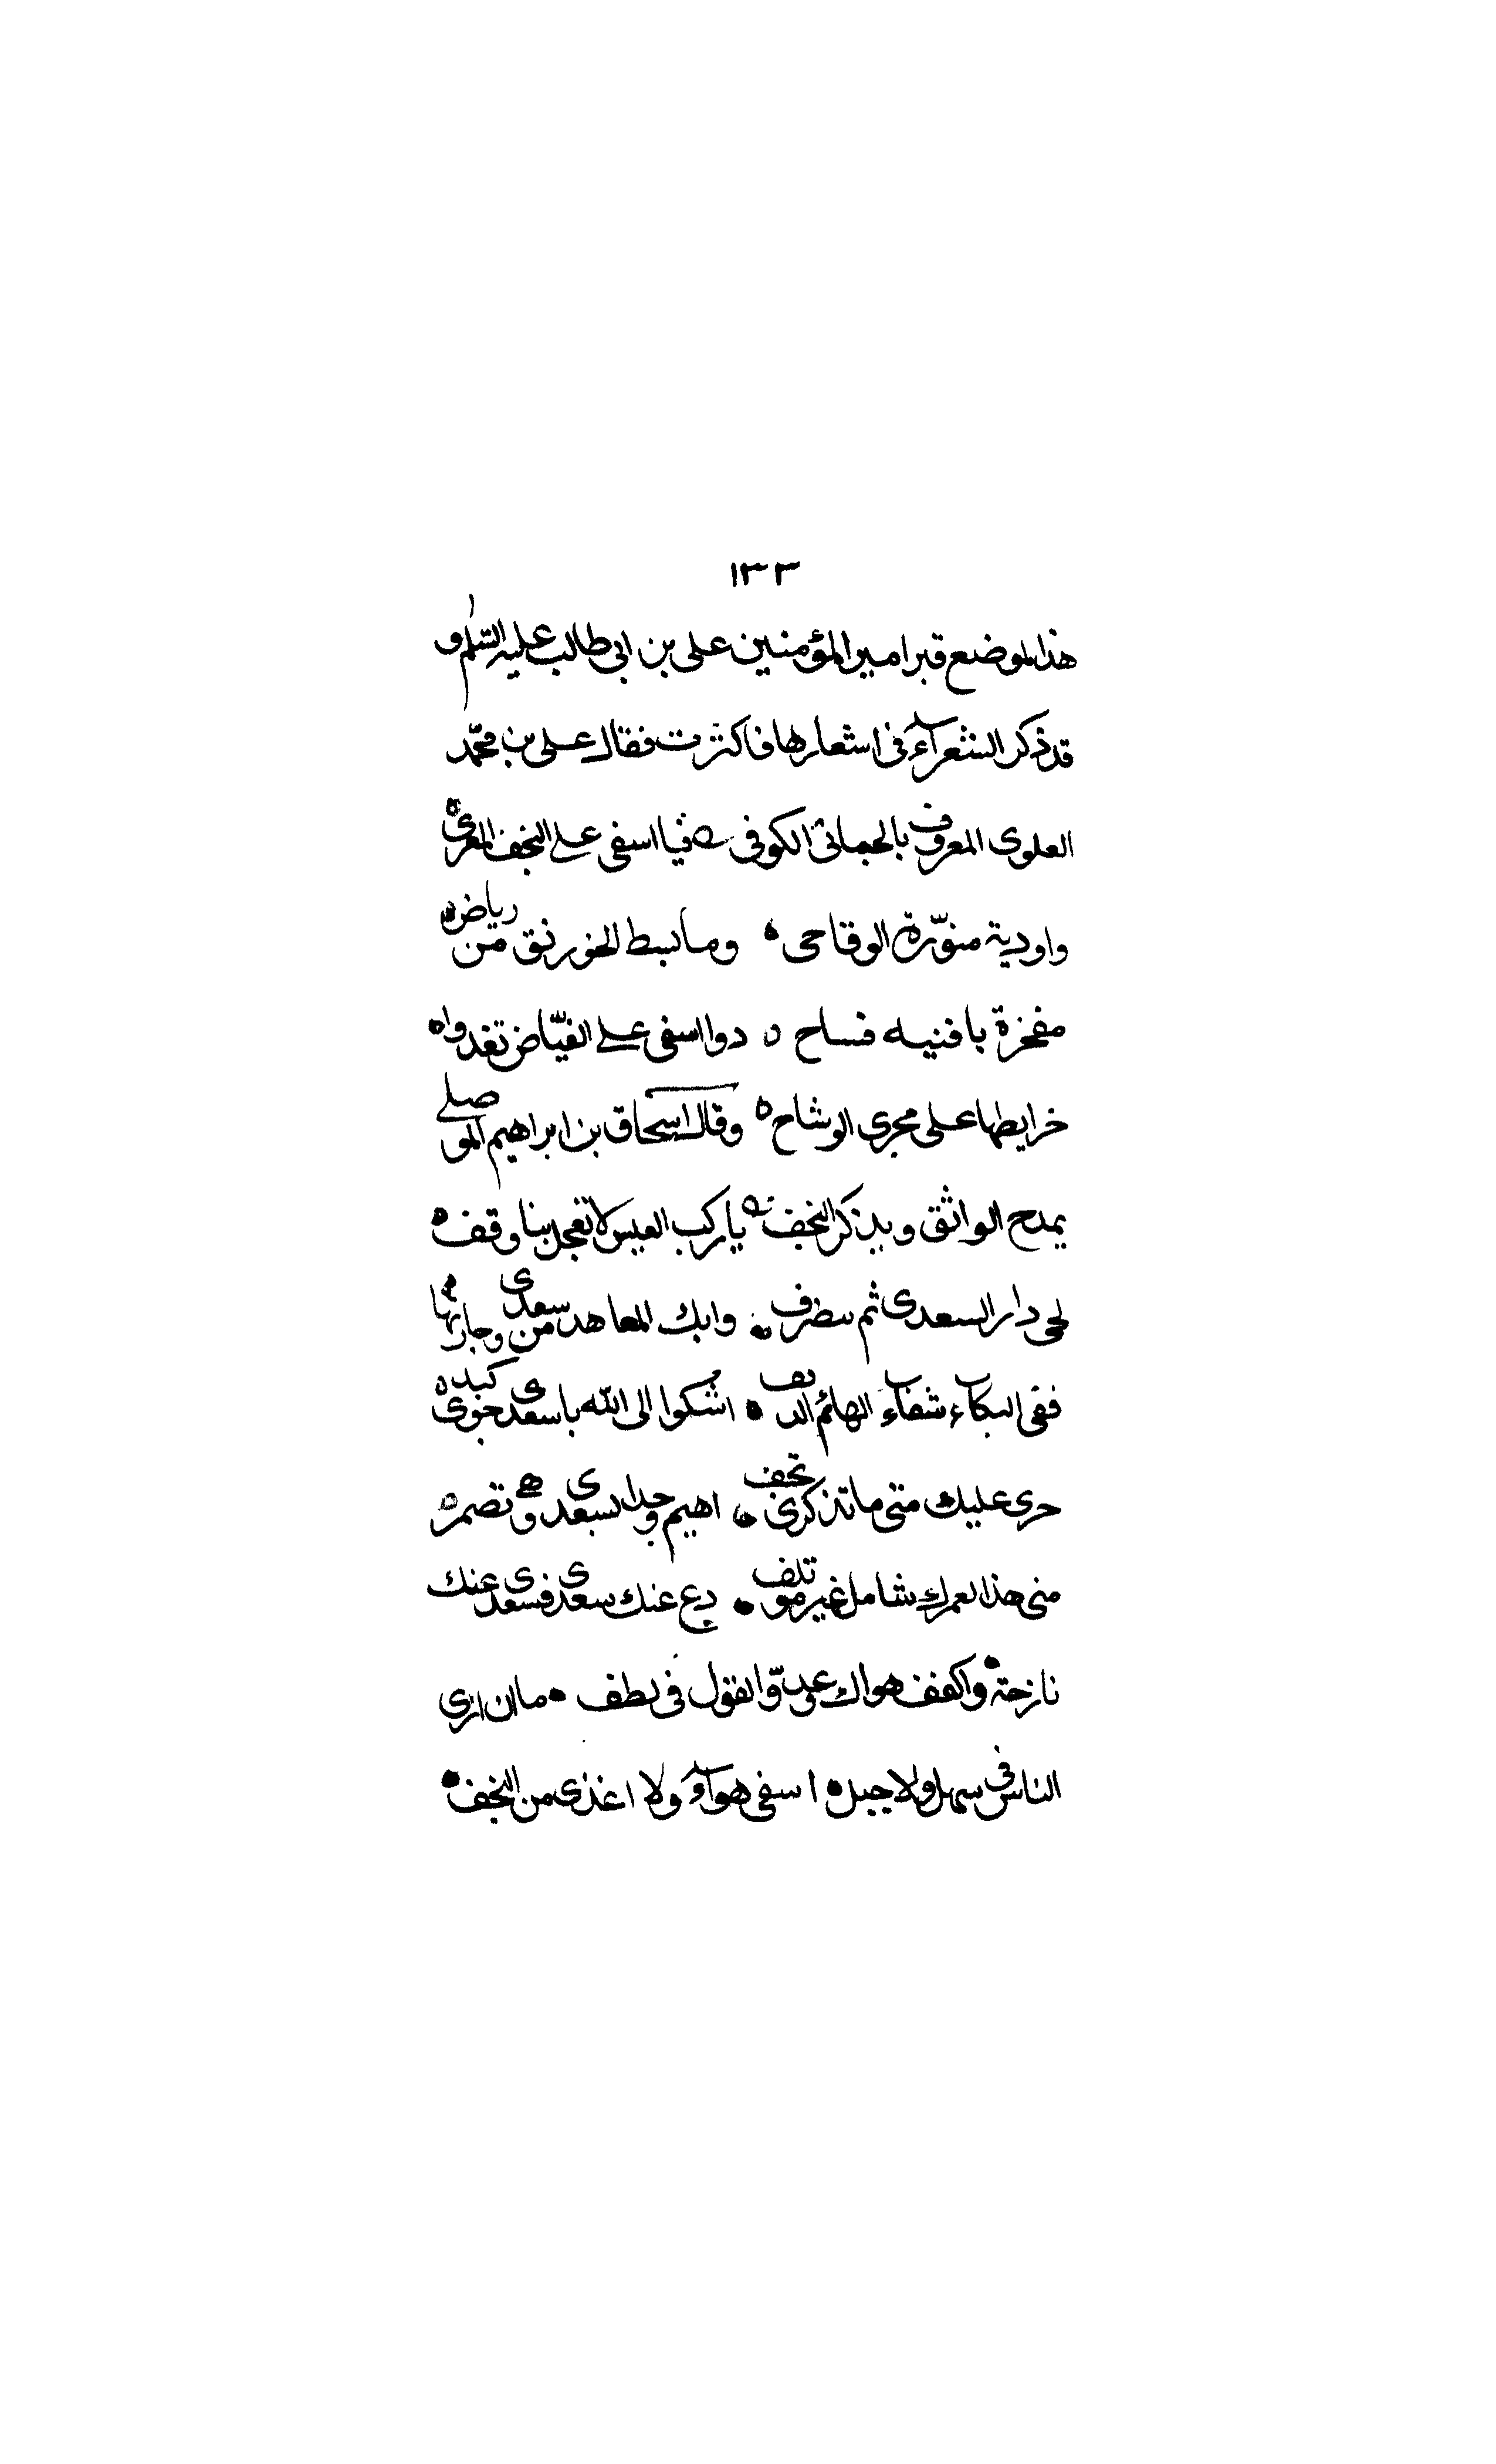 ١٣٣
هذا الموضع قبر امير المؤمنين على بن ابى طالب عليه السّلم و
قد ذكر الشعرآء فى اشعارها فاكثرت فقال على بن محمّد
العلوى المعروف بالحمانى الكوفى فيا اسفى على النجف المعرى
واودية منوّرة الوقاحى وما بسط الخورنق من رياض
مفخرة بافنيه فساح دوا اسفى على الفيّاض تغدوا
خرايطها على مجرى الوشاح وقال اسحاق بن ابراهيم الموصلے
يمدح الواثق ويذكر النجف ياركب العيس لا تعجل بنا وقف
لحى دار السعدى ثم ينصرف وابك المعاهد من سعدى وجارتها
ففى البكاء شفاء الهائم الدنف اشكوا الى الله ياسعدى جوى كبد
حرى عليك متى ما تذكرى تجف اهيم وجدا بسعدى وهى تصمر
منى هذا لعمرك شامل غير موتلف دع عنك سعدى فسعدى عنك
نازحة واكفف هواك وعدّ القول فى لطف ما ان ارى
الناس فى سهل ولا جبل اسفى هوآء ولا اغذى من النجف